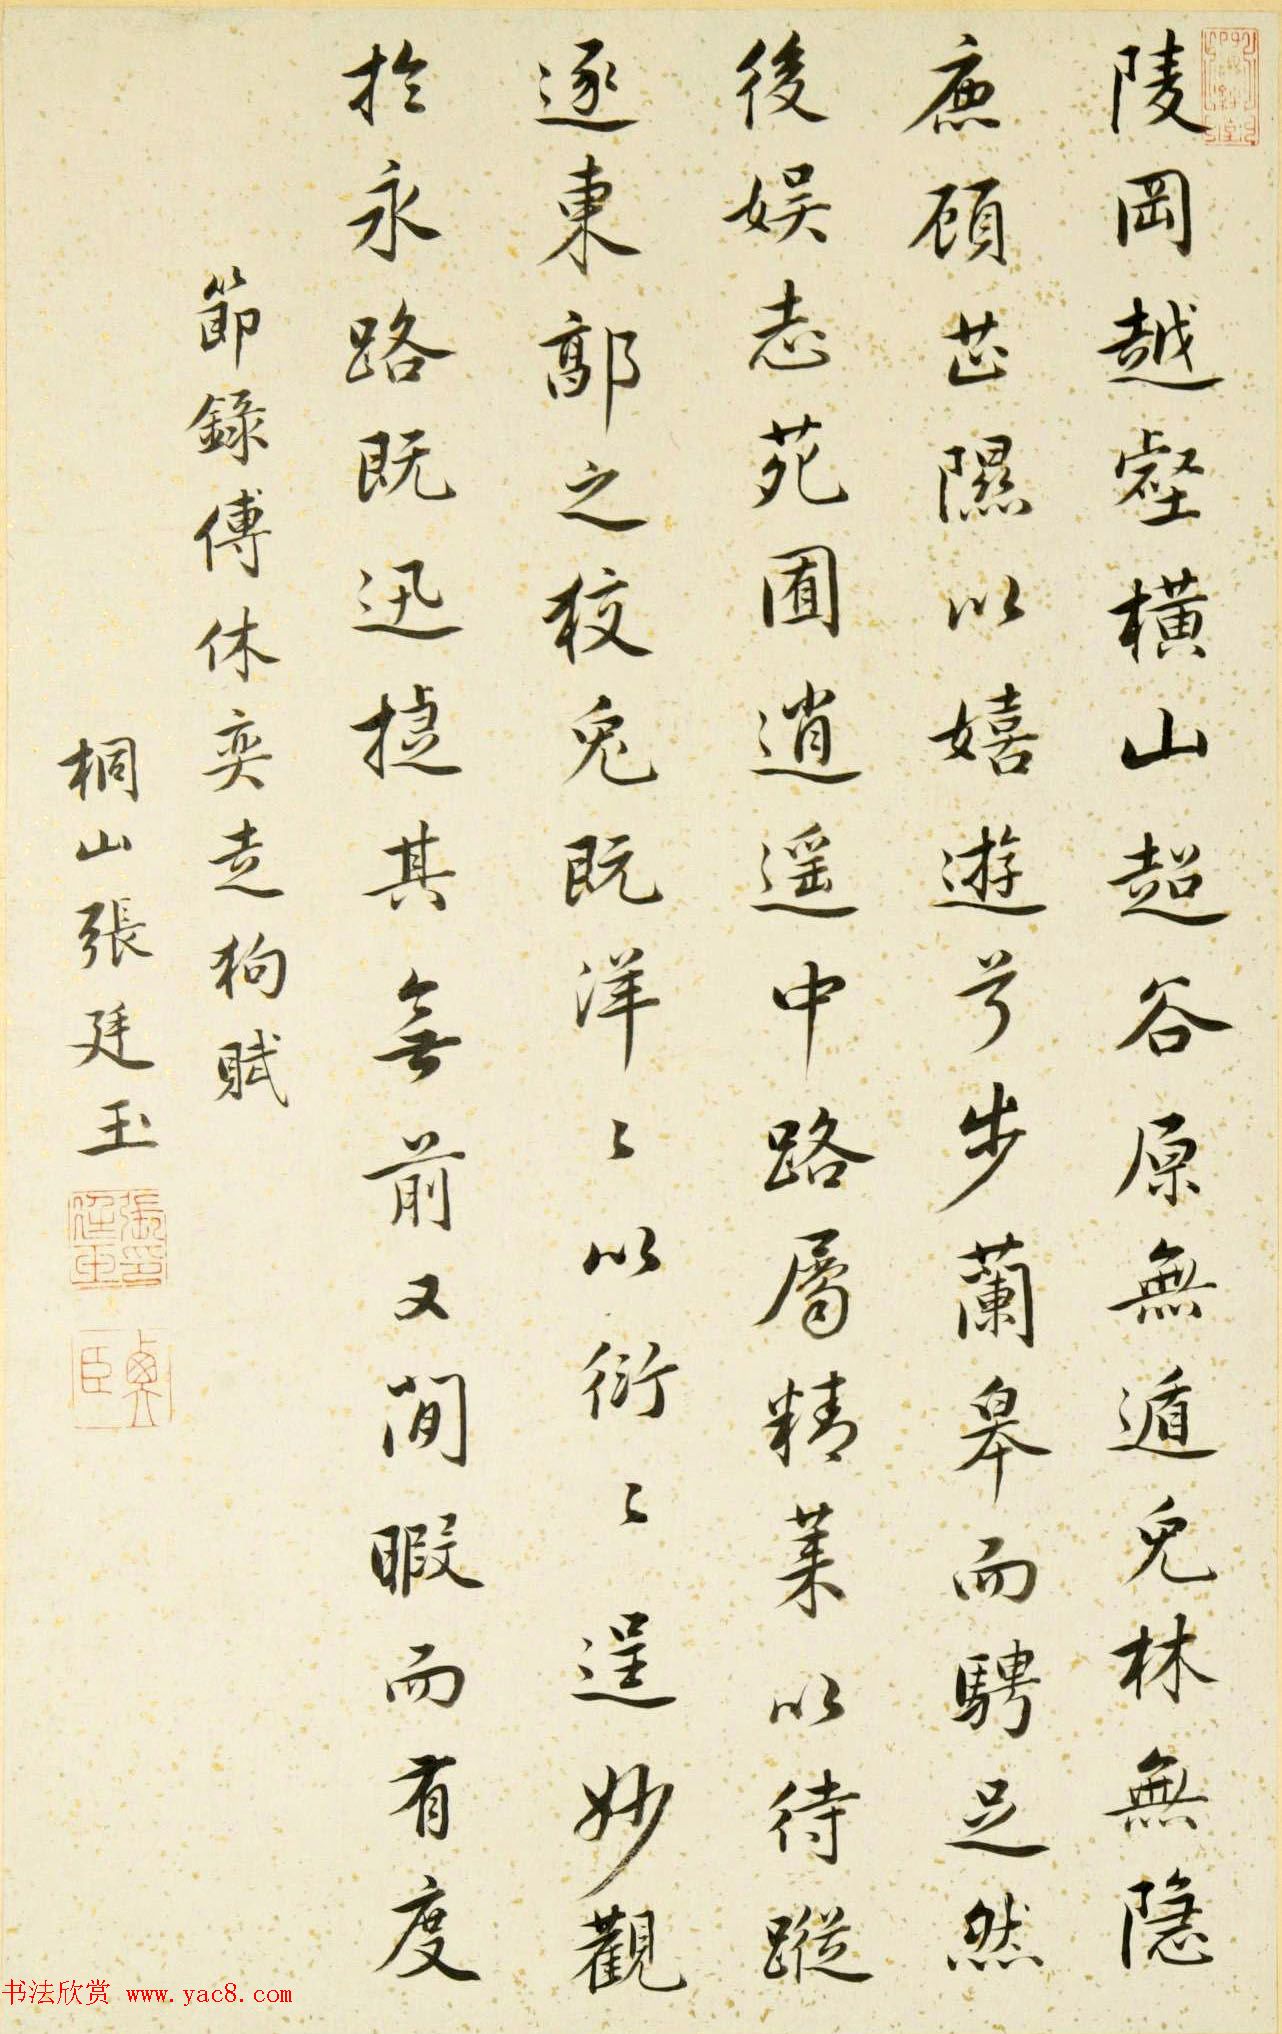 陵岡越壑橫山超谷原無遁兔林無隱
鹿顧芷隰以嬉遊兮步蘭皋而騁足然
後娛志苑囿逍遥中路屬精萊以待蹤
逐東郭之狡兔既洋〻以衍〻逞妙觀
於永路既迅捷其無前又閒暇而有度
節錄傅休奕走狗賦
桐山張廷玉
張廷玉印
臣
书法欣赏 www.yac8.com